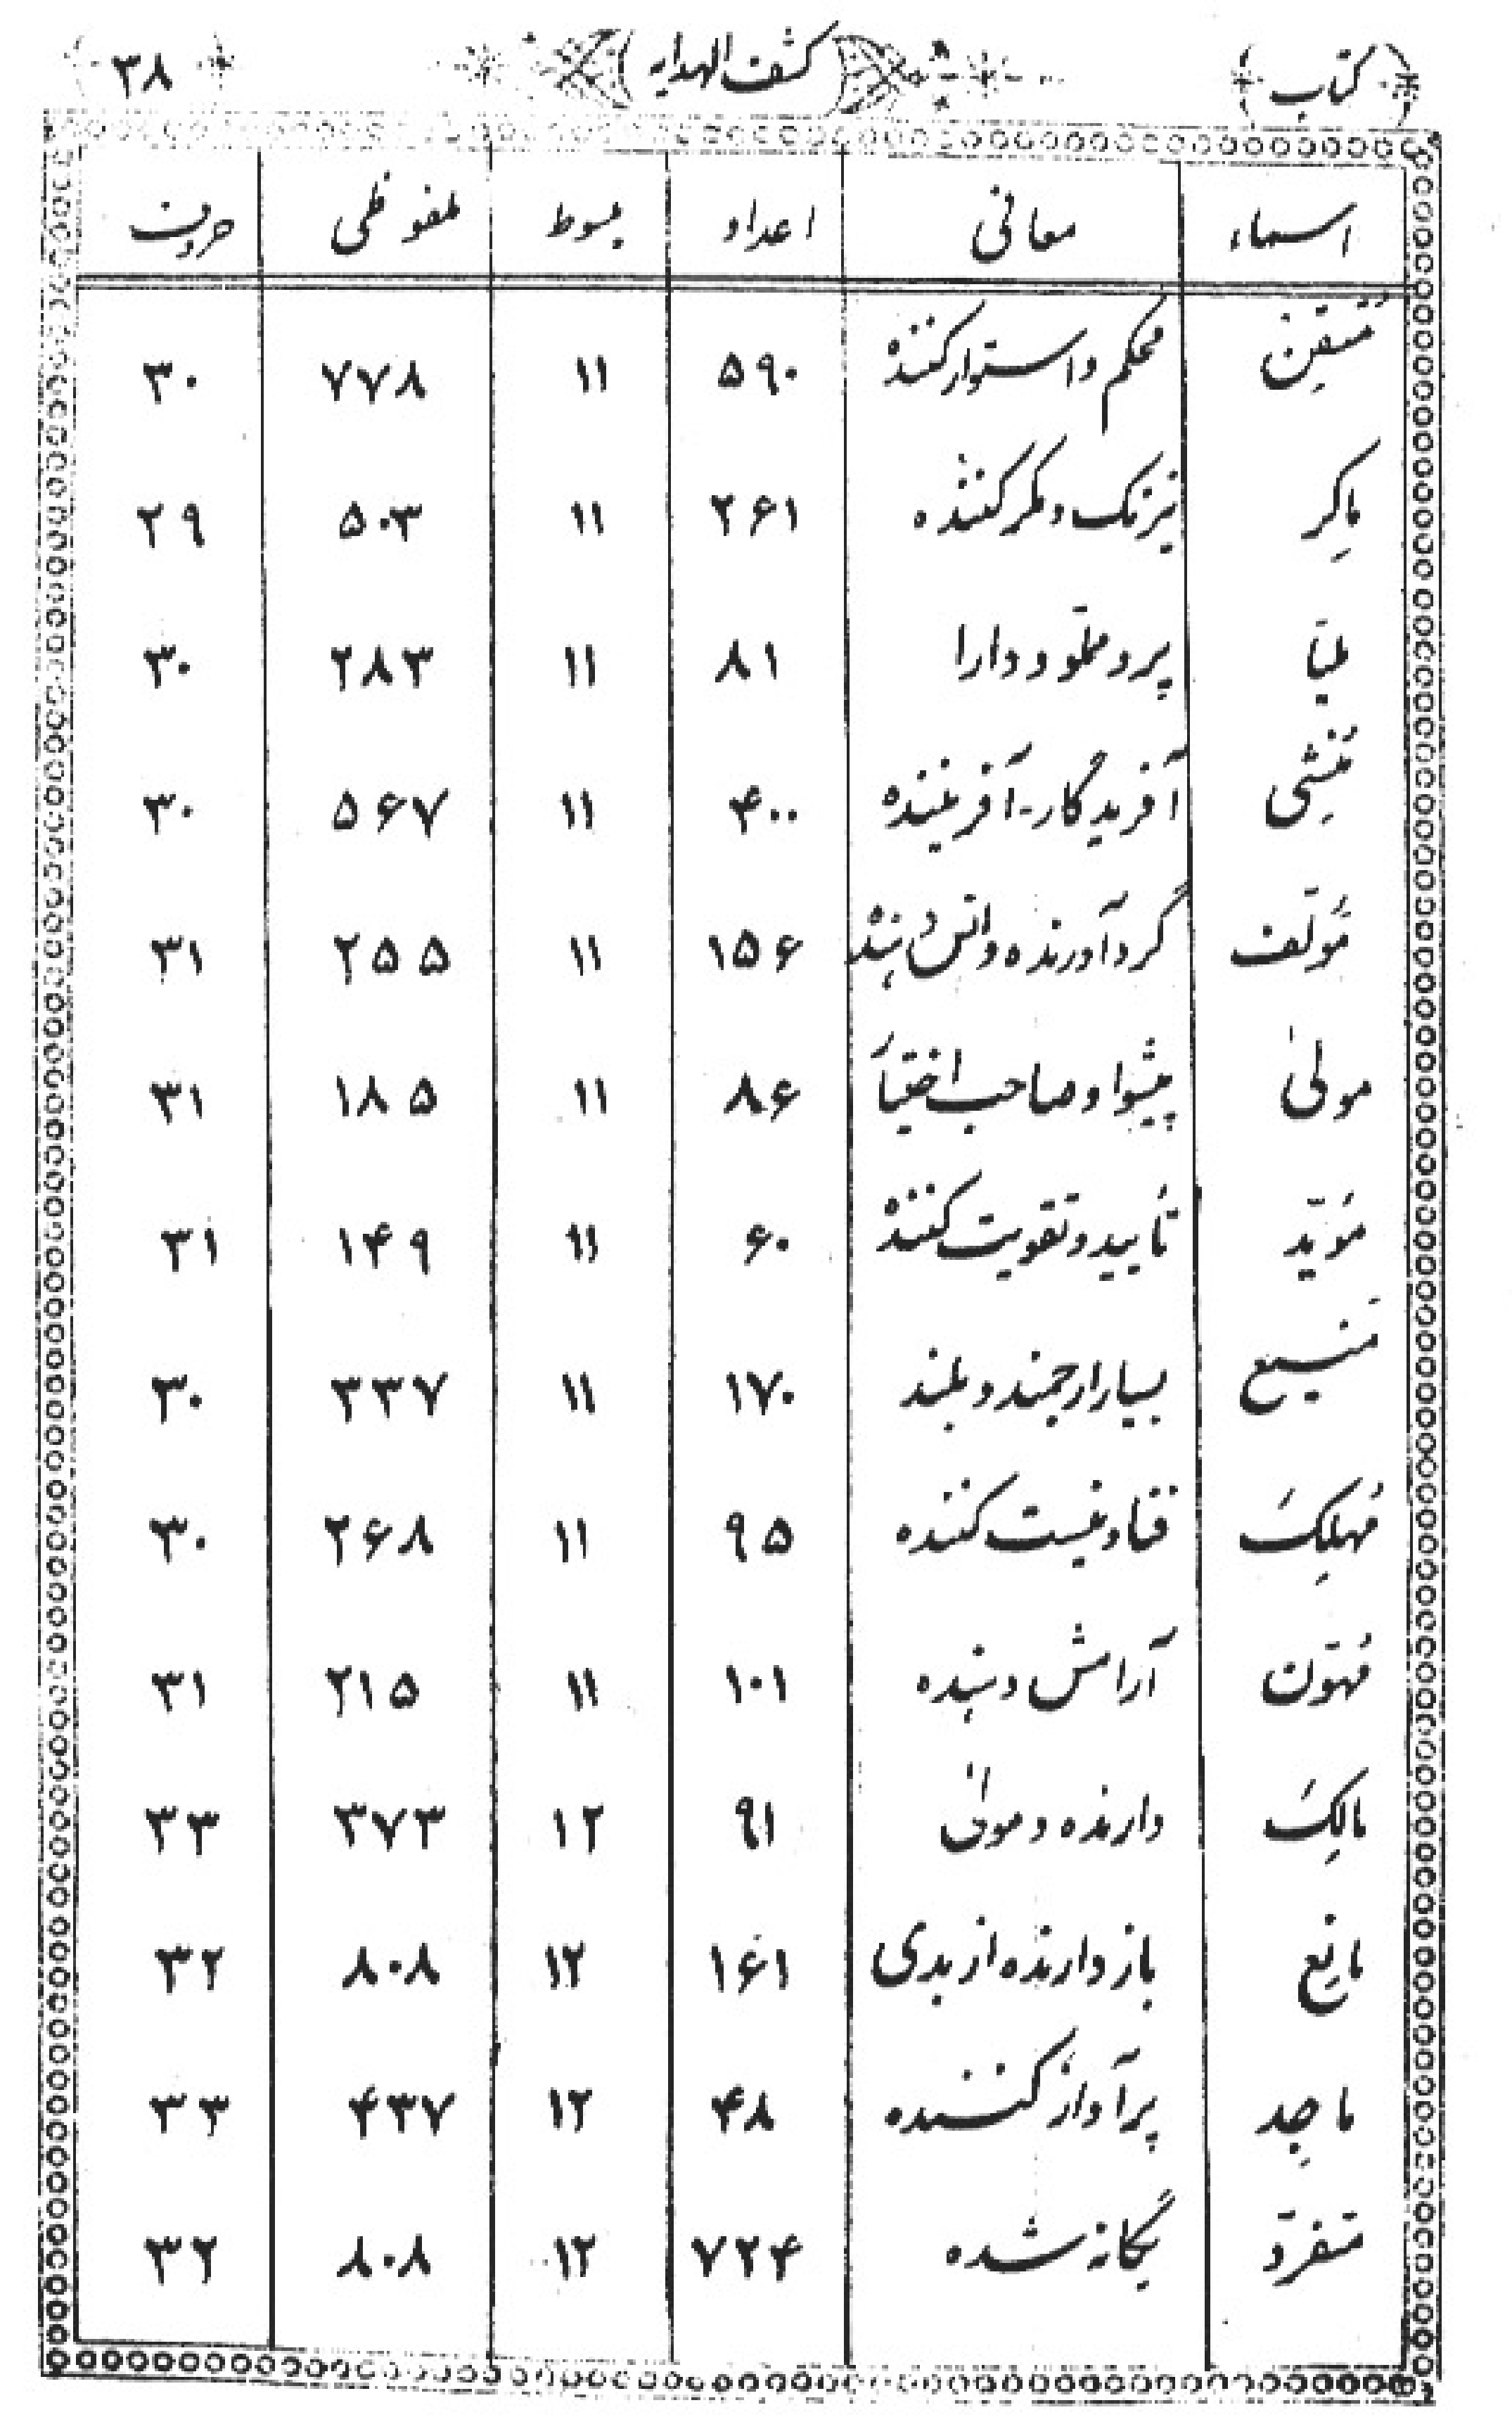 کتاب (کشف الهدایه) ۳۸
اسماء معانی اعداد بسوط ملفوظی حروف
مُتقِن محکم و استوار کننده ۵۹۰ ۱۱ ۷۷۸ ۳۰
ماکِر نیرنگ و مکر کننده ۲۶۱ ۱۱ ۵۰۳ ۲۹
ملیّا پر و مملوّ و دارا ۸۱ ۱۱ ۲۸۳ ۳۰
مُنشِی آفریدگار - آفریننده ۴۰۰ ۱۱ ۵۶۷ ۳۰
مُولّف گردآورنده و انس دهنده ۱۵۶ ۱۱ ۲۵۵ ۳۱
مولیٰ پیشوا و صاحب اختیار ۸۶ ۱۱ ۱۸۵ ۳۱
مُویّد تأیید و تقویت کننده ۶۰ ۱۱ ۱۴۹ ۳۱
مَنیع بسیار ارجمند و بلند ۱۷۰ ۱۱ ۳۳۷ ۳۰
مُهلِک فنا و نیست کننده ۹۵ ۱۱ ۲۶۸ ۳۰
مُهوّن آرامش دهنده ۱۰۱ ۱۱ ۲۱۵ ۳۱
مالِک دارنده و مولیٰ ۹۱ ۱۲ ۳۷۳ ۳۳
مانِع باز دارنده از بدی ۱۶۱ ۱۲ ۸۰۸ ۳۲
ماجِد پرآوازه کننده ۴۸ ۱۲ ۴۳۷ ۳۳
متفرّد یگانه شده ۷۲۴ ۱۲ ۸۰۸ ۳۲